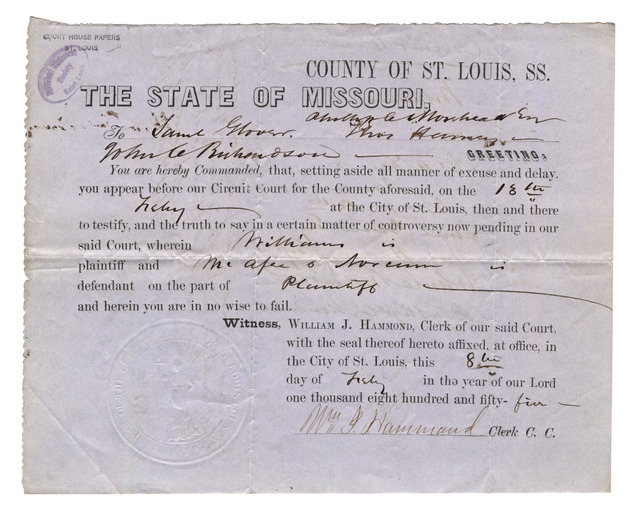 COURT HOUSE PAPERS
ST. LOUIS
Missouri Historical
Society
Saint Louis
COUNTY OF ST. LOUIS, SS.
THE STATE OF MISSOURI,
To Saml Glover,
John C Richardson GREETING:
You are hereby Commanded, that, setting aside all manner of excuse and delay,
you appear before our Circuit Court for the County aforesaid, on the 18th
Feby at the City of St. Louis, then and there
to testify, and the truth to say in a certain matter of controversy now pending in our
said Court, wherein Williams is
plaintiff and McAfee & is
defendant on the part of Plaintiff
and herein you are in no wise to fail.
Witness, WILLIAM J. HAMMOND, Clerk of our said Court,
with the seal thereof hereto affixed, at office, in
the City of St. Louis, this 8th
day of Feby in the year of our Lord
one thousand eight hundred and fifty-five
Wm J. Hammond Clerk C. C.